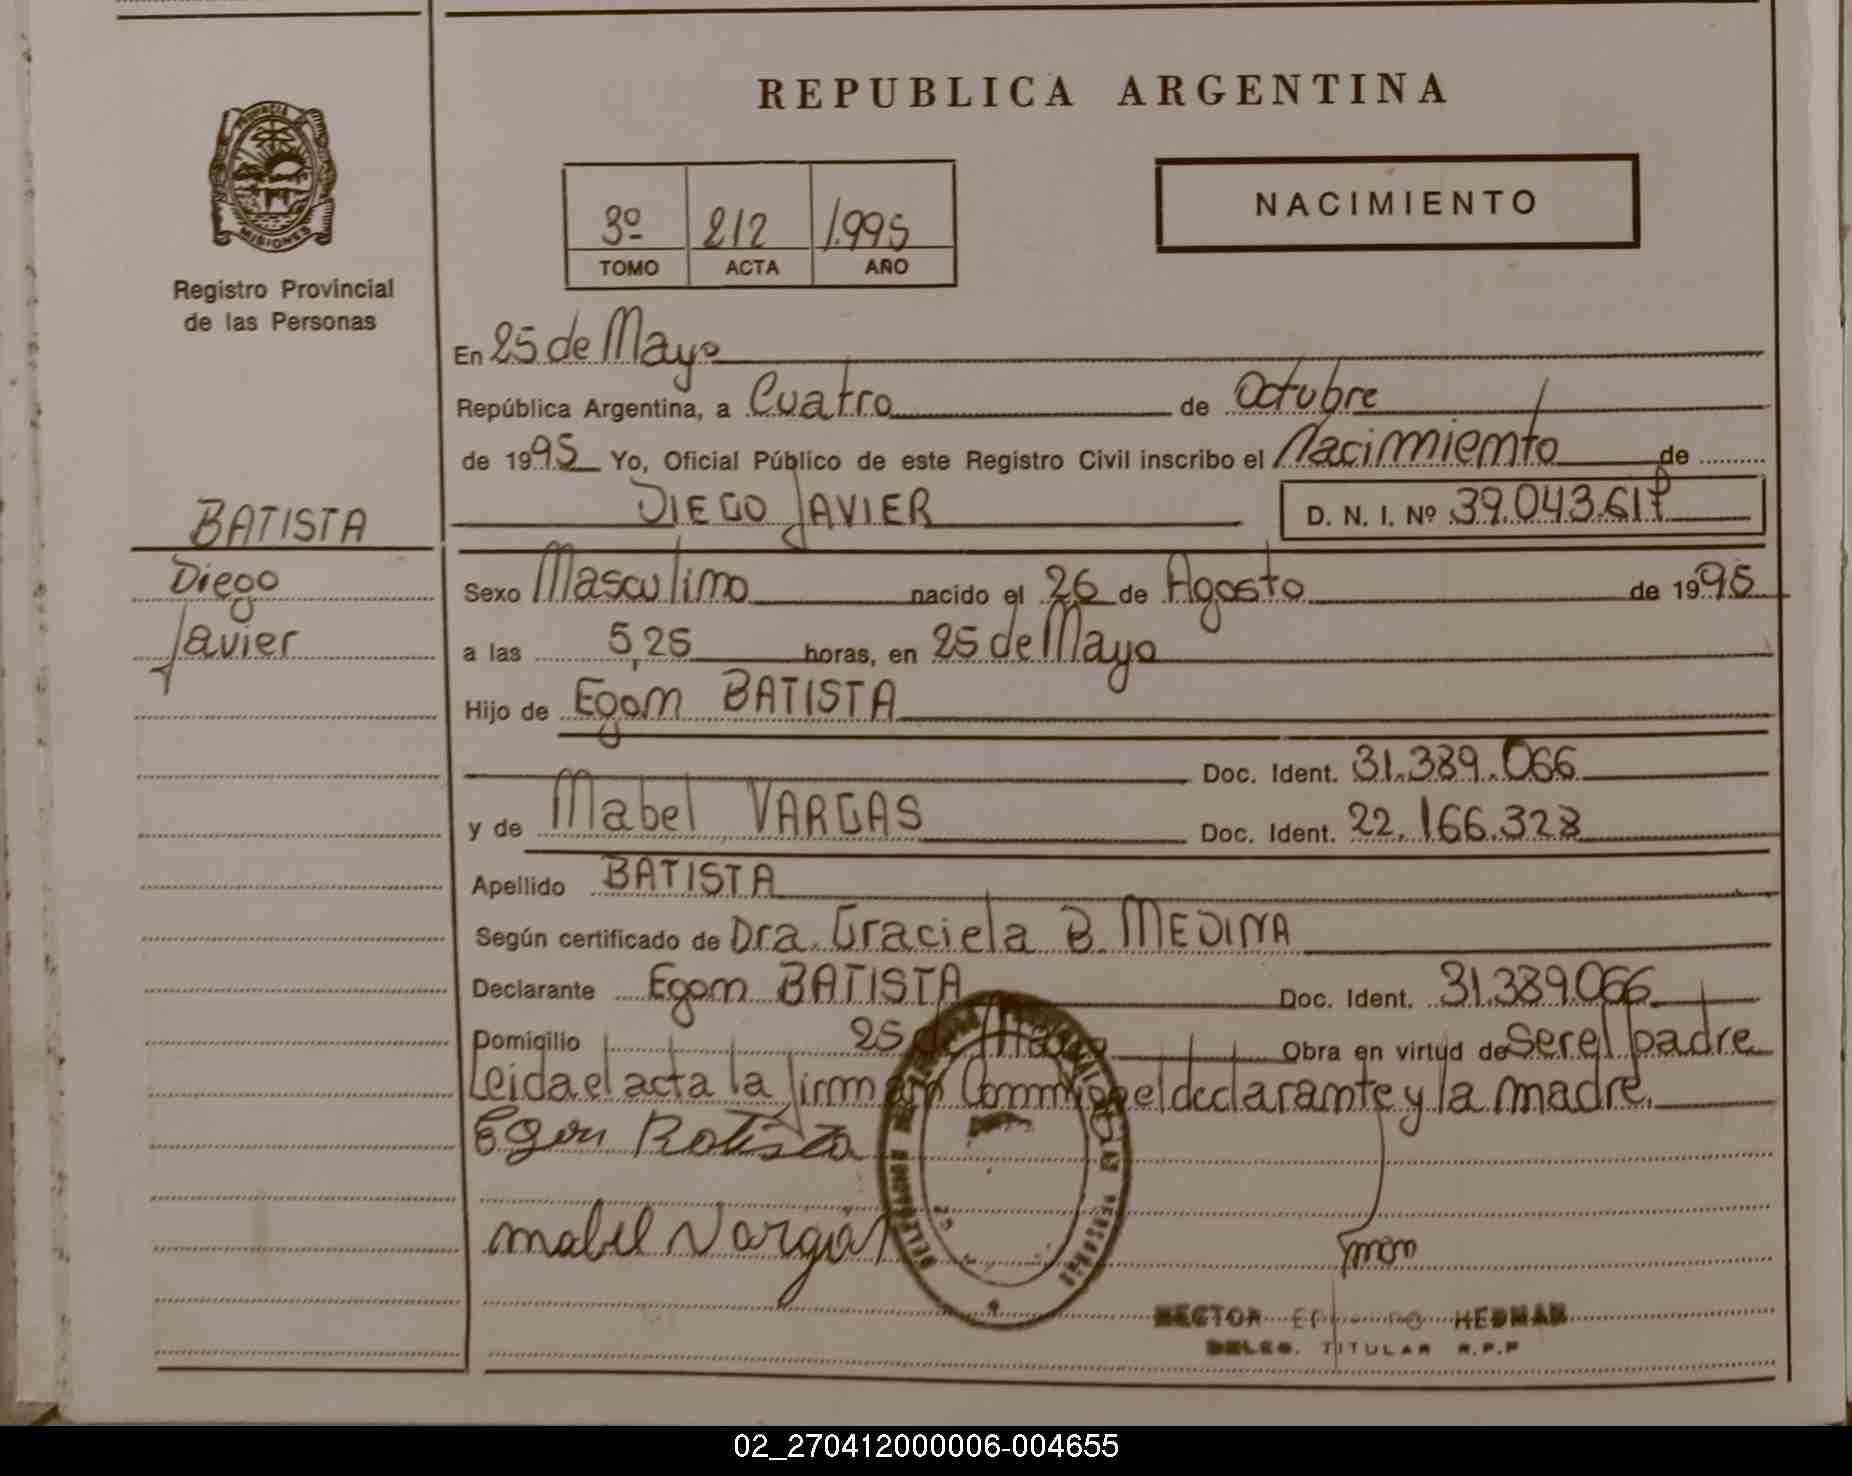 REPUBLICA ARGENTINA
PROVINCIA DE
MISIONES
Registro Provincial
de las Personas
3º 212 1.995
TOMO ACTA AÑO
NACIMIENTO
En 25 de Mayo
República Argentina, a Cuatro de Octubre
de 1995 Yo, Oficial Público de este Registro Civil inscribo el Nacimiento de
DIEGO JAVIER D. N. I. Nº 39.043.617
BATISTA
Diego
Javier
Sexo Masculino nacido el 26 de Agosto de 1995
a las 5,25 horas, en 25 de Mayo
Hijo de Egon BATISTA
Doc. Ident. 31.389.066
y de Mabel VARGAS Doc. Ident. 22.166.328
Apellido BATISTA
Según certificado de Dra. Graciela B. MEDINA
Declarante Egon BATISTA Doc. Ident. 31.389.066
Domicilio 25 de Mayo Obra en virtud de Ser el padre
Leida el acta la firman Conmigo el declarante y la madre.
Egon Batista
Mabel Vargas
HECTOR HEDMAN
DELEG. TITULAR R.P.P
02_270412000006-004655